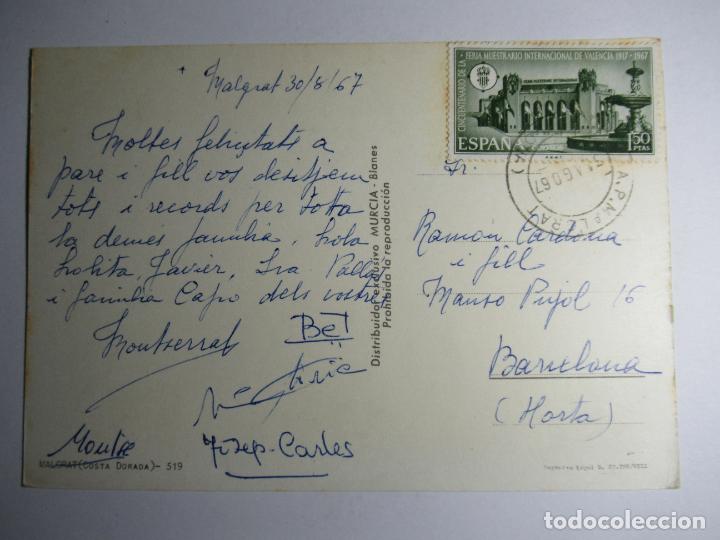 Malgrat 30/8/67
Moltes felicitats a
pare i fill vos desitjem
tots i records per totta
la demés familia, Lola
Lolita, Javier,
i familia Capo dels vostres
Montserrat
BeT
Josep-Carles
Montse
MALGRAT (COSTA DORADA) - 519
Distribuidor exclusivo MURCIA - Blanes
Prohibida la reproducción
CINCUENTENARIO DE LA FERIA MUESTRARIO INTERNACIONAL DE VALENCIA 1917-1967
ESPAÑA
1,50
PTAS
AGO 67
Sr.
Ramon Cardona
i fill
Manso Pujol 16
Barcelona
(Horta)
todocoleccion.net